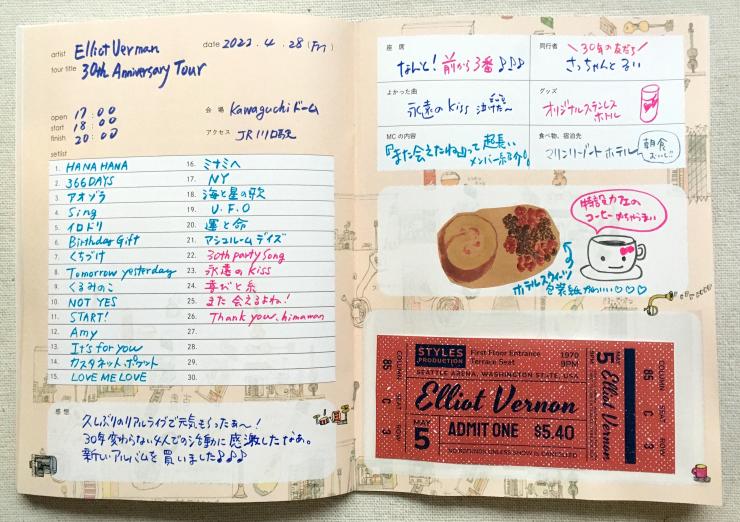 artist Elliot Verman
date 2022.4.28(Fri)
tour title 30th Anniversary Tour
open 17:00
start 18:00
finish 20:00
会場 Kawaguchiドーム
アクセス JR川口駅
setlist
1. HANA HANA
2. 366DAYS
3. アオゾラ
4. Sing
5. イロドリ
6. Birthday Gift
7. くちづけ
8. Tomorrow yesterday
9. くるみのこ
10. NOT YES
11. START!
12. Amy
13. It's for you
14. カスタネット・ポケット
15. LOVE ME LOVE
16. ミナミへ
17. NY
18. 海と星の歌
19. U.F.O
20. 運と命
21. アシュルームデイズ
22. 30th party song
23. 永遠のkiss
24. 喜びと糸
25. また会えるよね!
26. Thank you, himaman
27.
28.
29.
30.
感想
久しぶりのリアルライブで元気もらったぁ〜!
30年変わらない4人での活動に感激したなあ。
新しいアルバムを買いました♪♪♪
座席
なんと!前から3番♪♪♪
同行者
\30年の友だち/
さっちゃんとるい
よかった曲
永遠のkiss 泣けた〜
グッズ
オリジナルステンレス
ボトル
MCの内容
「また会えたね」って超長い
メンバー紹介。
食べ物、宿泊先
マリンリゾートホテル
朝食
おいしい
特設カフェの
コーヒーめちゃうまい
ホテルスウィーツ
包装紙かわいい♡♡♡
STYLES
PRODUCTION
First Floor Entrance
Terrace Seat
1970
9PM
SEATTLE ARENA, WASHINGTON STATE, USA
Elliot Vernon
MAY
5
ADMIT ONE $5.40
NO REFUNDS UNLESS SHOW IS CANCELLED
COLUMN SEAT ROW
85 C 3
MAY
5
Elliot Vernon
COLUMN SEAT ROW
85 C 3